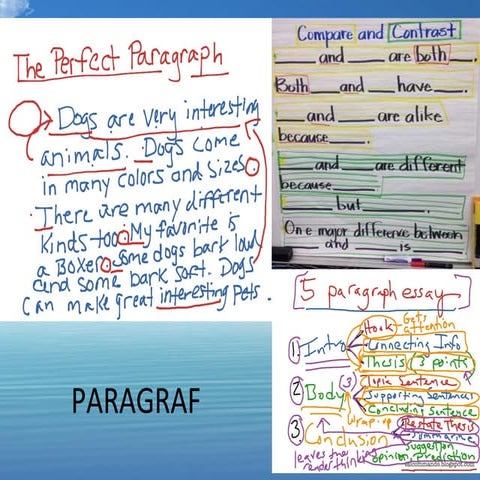 The Perfect Paragraph
Dogs are very interesting
animals. Dogs come
in many colors and sizes.
There are many different
kinds too. My favorite is
a Boxer. Some dogs bark loud
and some bark soft. Dogs
can make great interesting pets.
Compare and Contrast
____ and ____ are both ____.
Both ____ and ____ have ____.
____ and ____ are alike
because ____.
____ and ____ are different
because ____
____ but ____.
One major difference between
____ and ____ is ____
5 paragraph essay
1. Intro
Hook Gets
attention
Connecting Info
Thesis (3 points)
2 Body (3)
Topic Sentence
Supporting Sentences
Concluding Sentence
3 Conclusion
wrap-up
Restate Thesis
Summarize
suggestion
opinion, prediction
leaves the
reader thinking
PARAGRAF